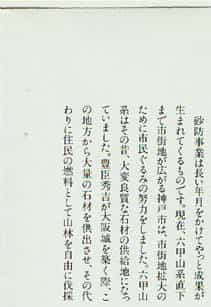 砂防事業は長い年月をかけてやっと成果が
生まれてくるものです。現在、六甲山系直下
まで市街地が広がる神戸市は、市街地拡大の
ために市民ぐるみの努力をしました。六甲山
系はその昔、大変良質な石材の供給地になっ
ていました。豊臣秀吉が大阪城を築く際、こ
の地方から大量の石材を供出させ、その代
わりに住民の燃料として山林を自由に伐採